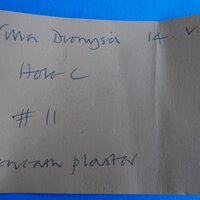 Villa Dionysia 14. V.
Hole C
# 11
beneath plaster